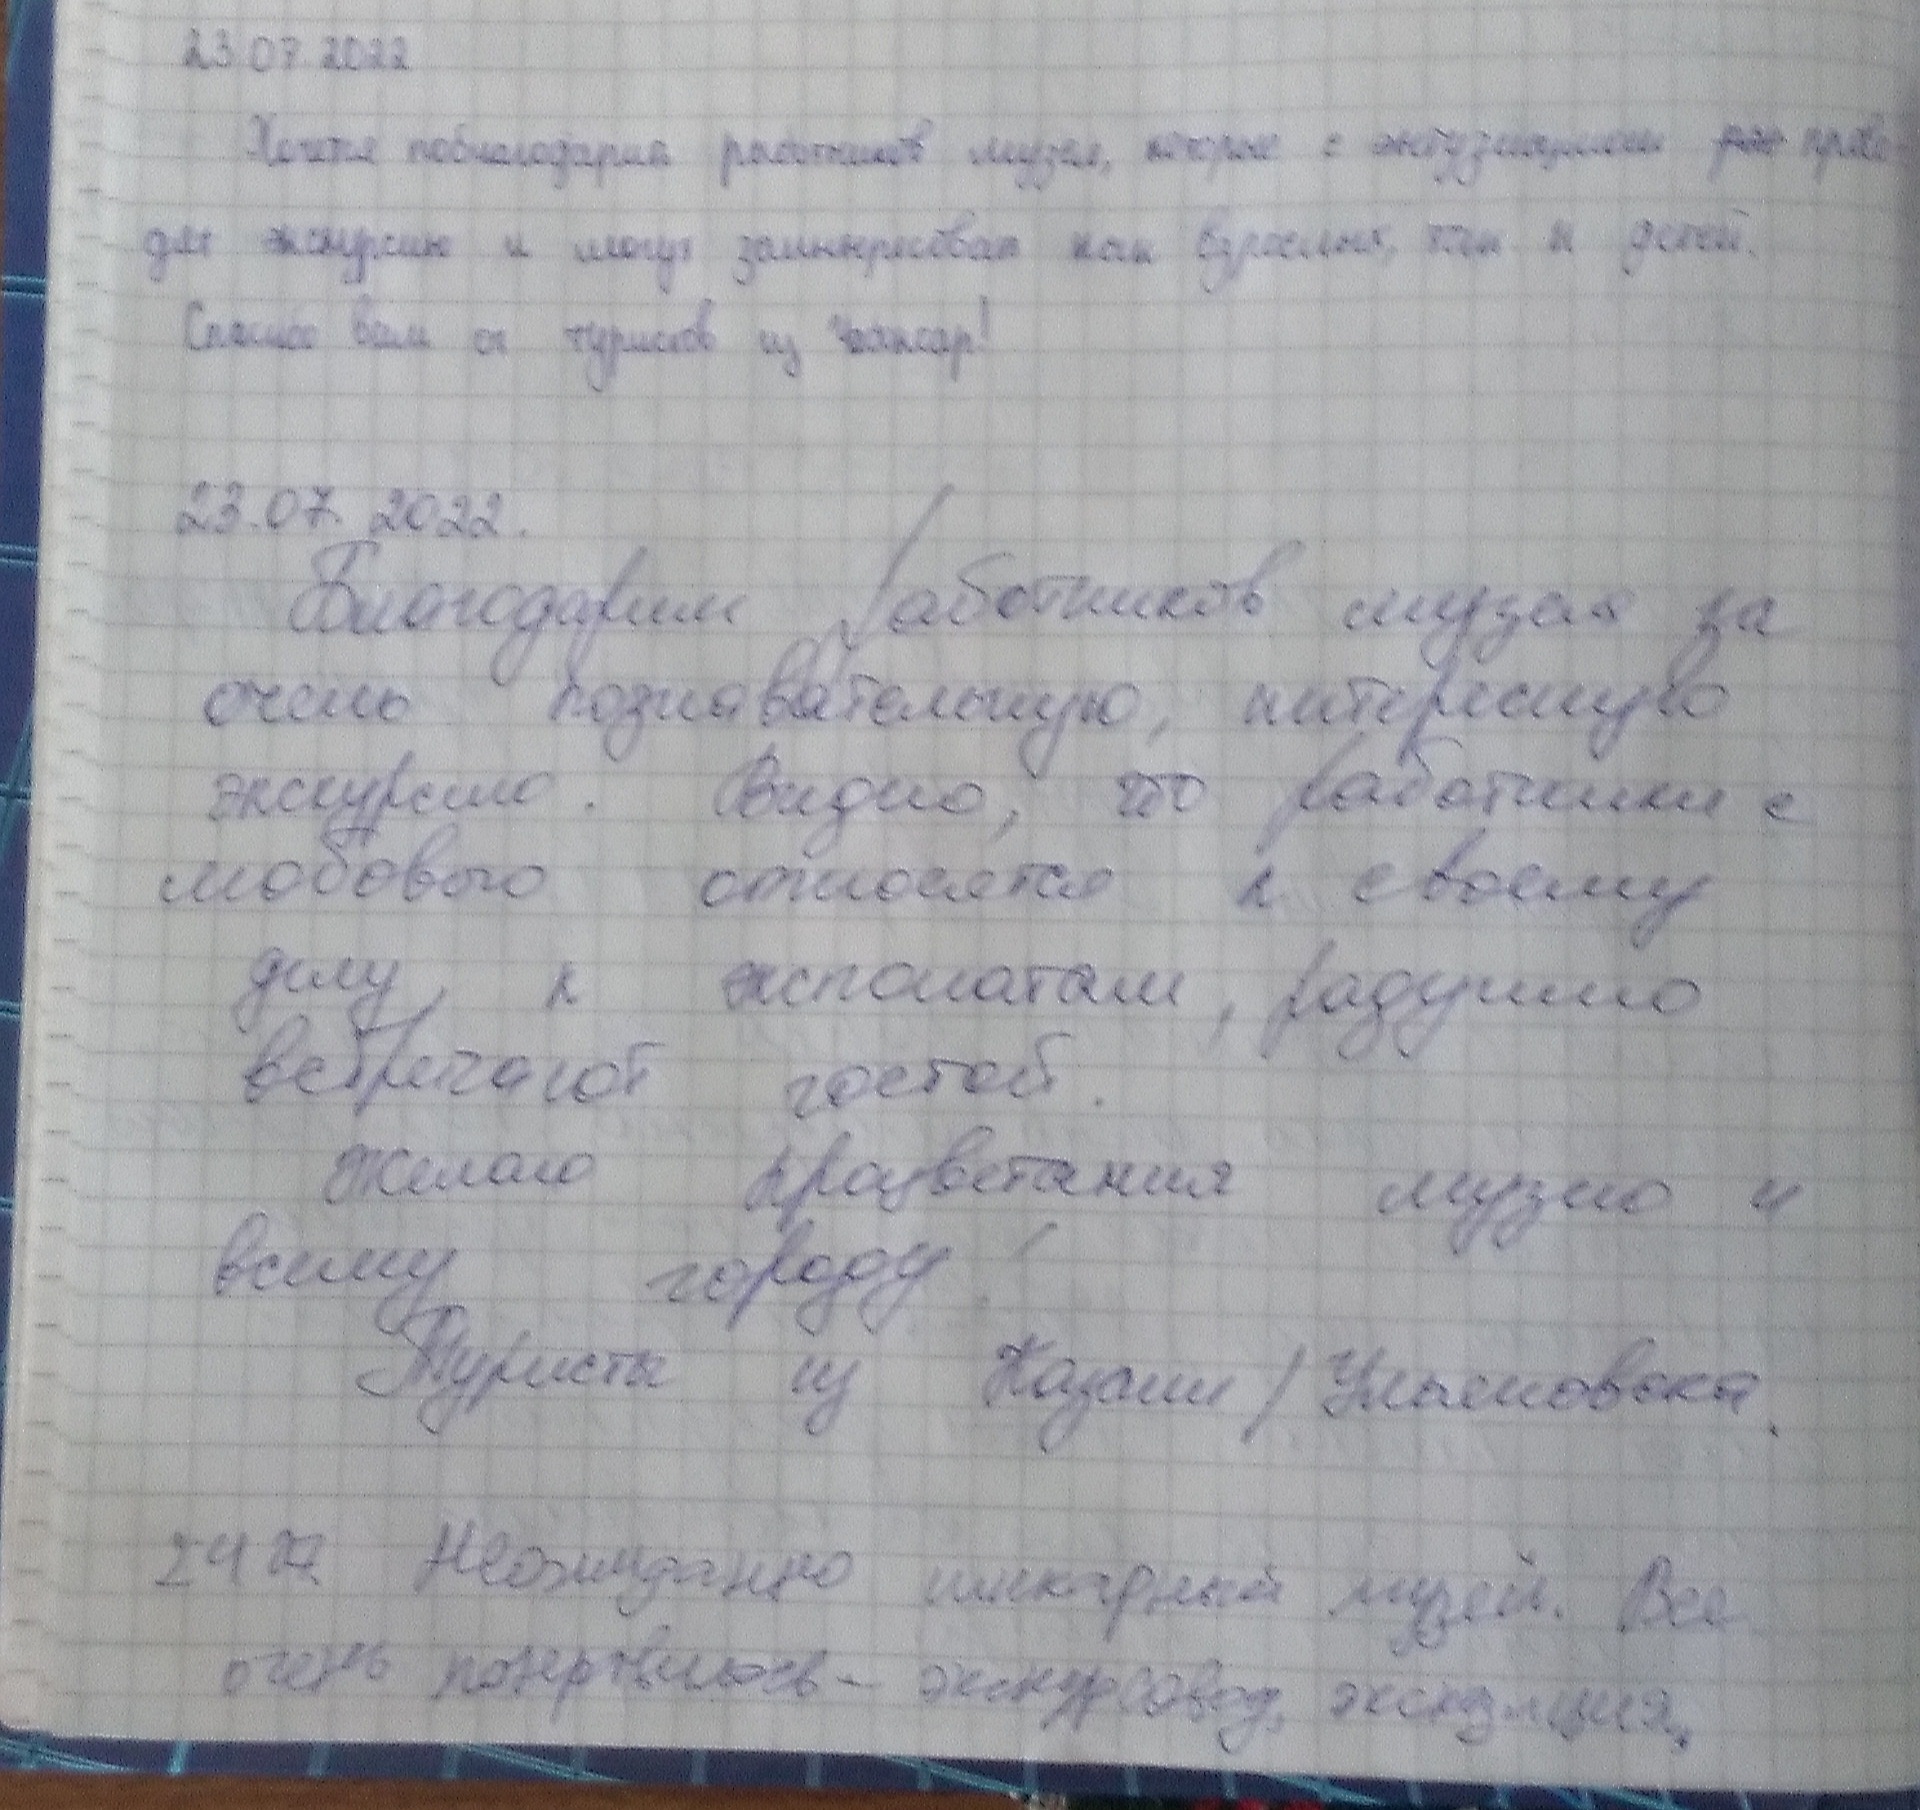 23.07.2022
Хочется поблагодарить работников музея, которые с энтузиазмом прово
дят экскурсию и могут заинтересовать как взрослых, так и детей.
Спасибо вам от туристов из
23.07.2022.
Благодарим работников музея за
очень познавательную, интересную
экскурсию. Видно, что работники с
любовью относятся к своему
делу, к экспонатам, радушно
встречают гостей.
Желаю процветания музею и
всему городу!
Туристы из Казани / Ульяновска.
24.07 Неожиданно шикарный музей. Все
очень понравилось - экскурсовод, экспозиция,